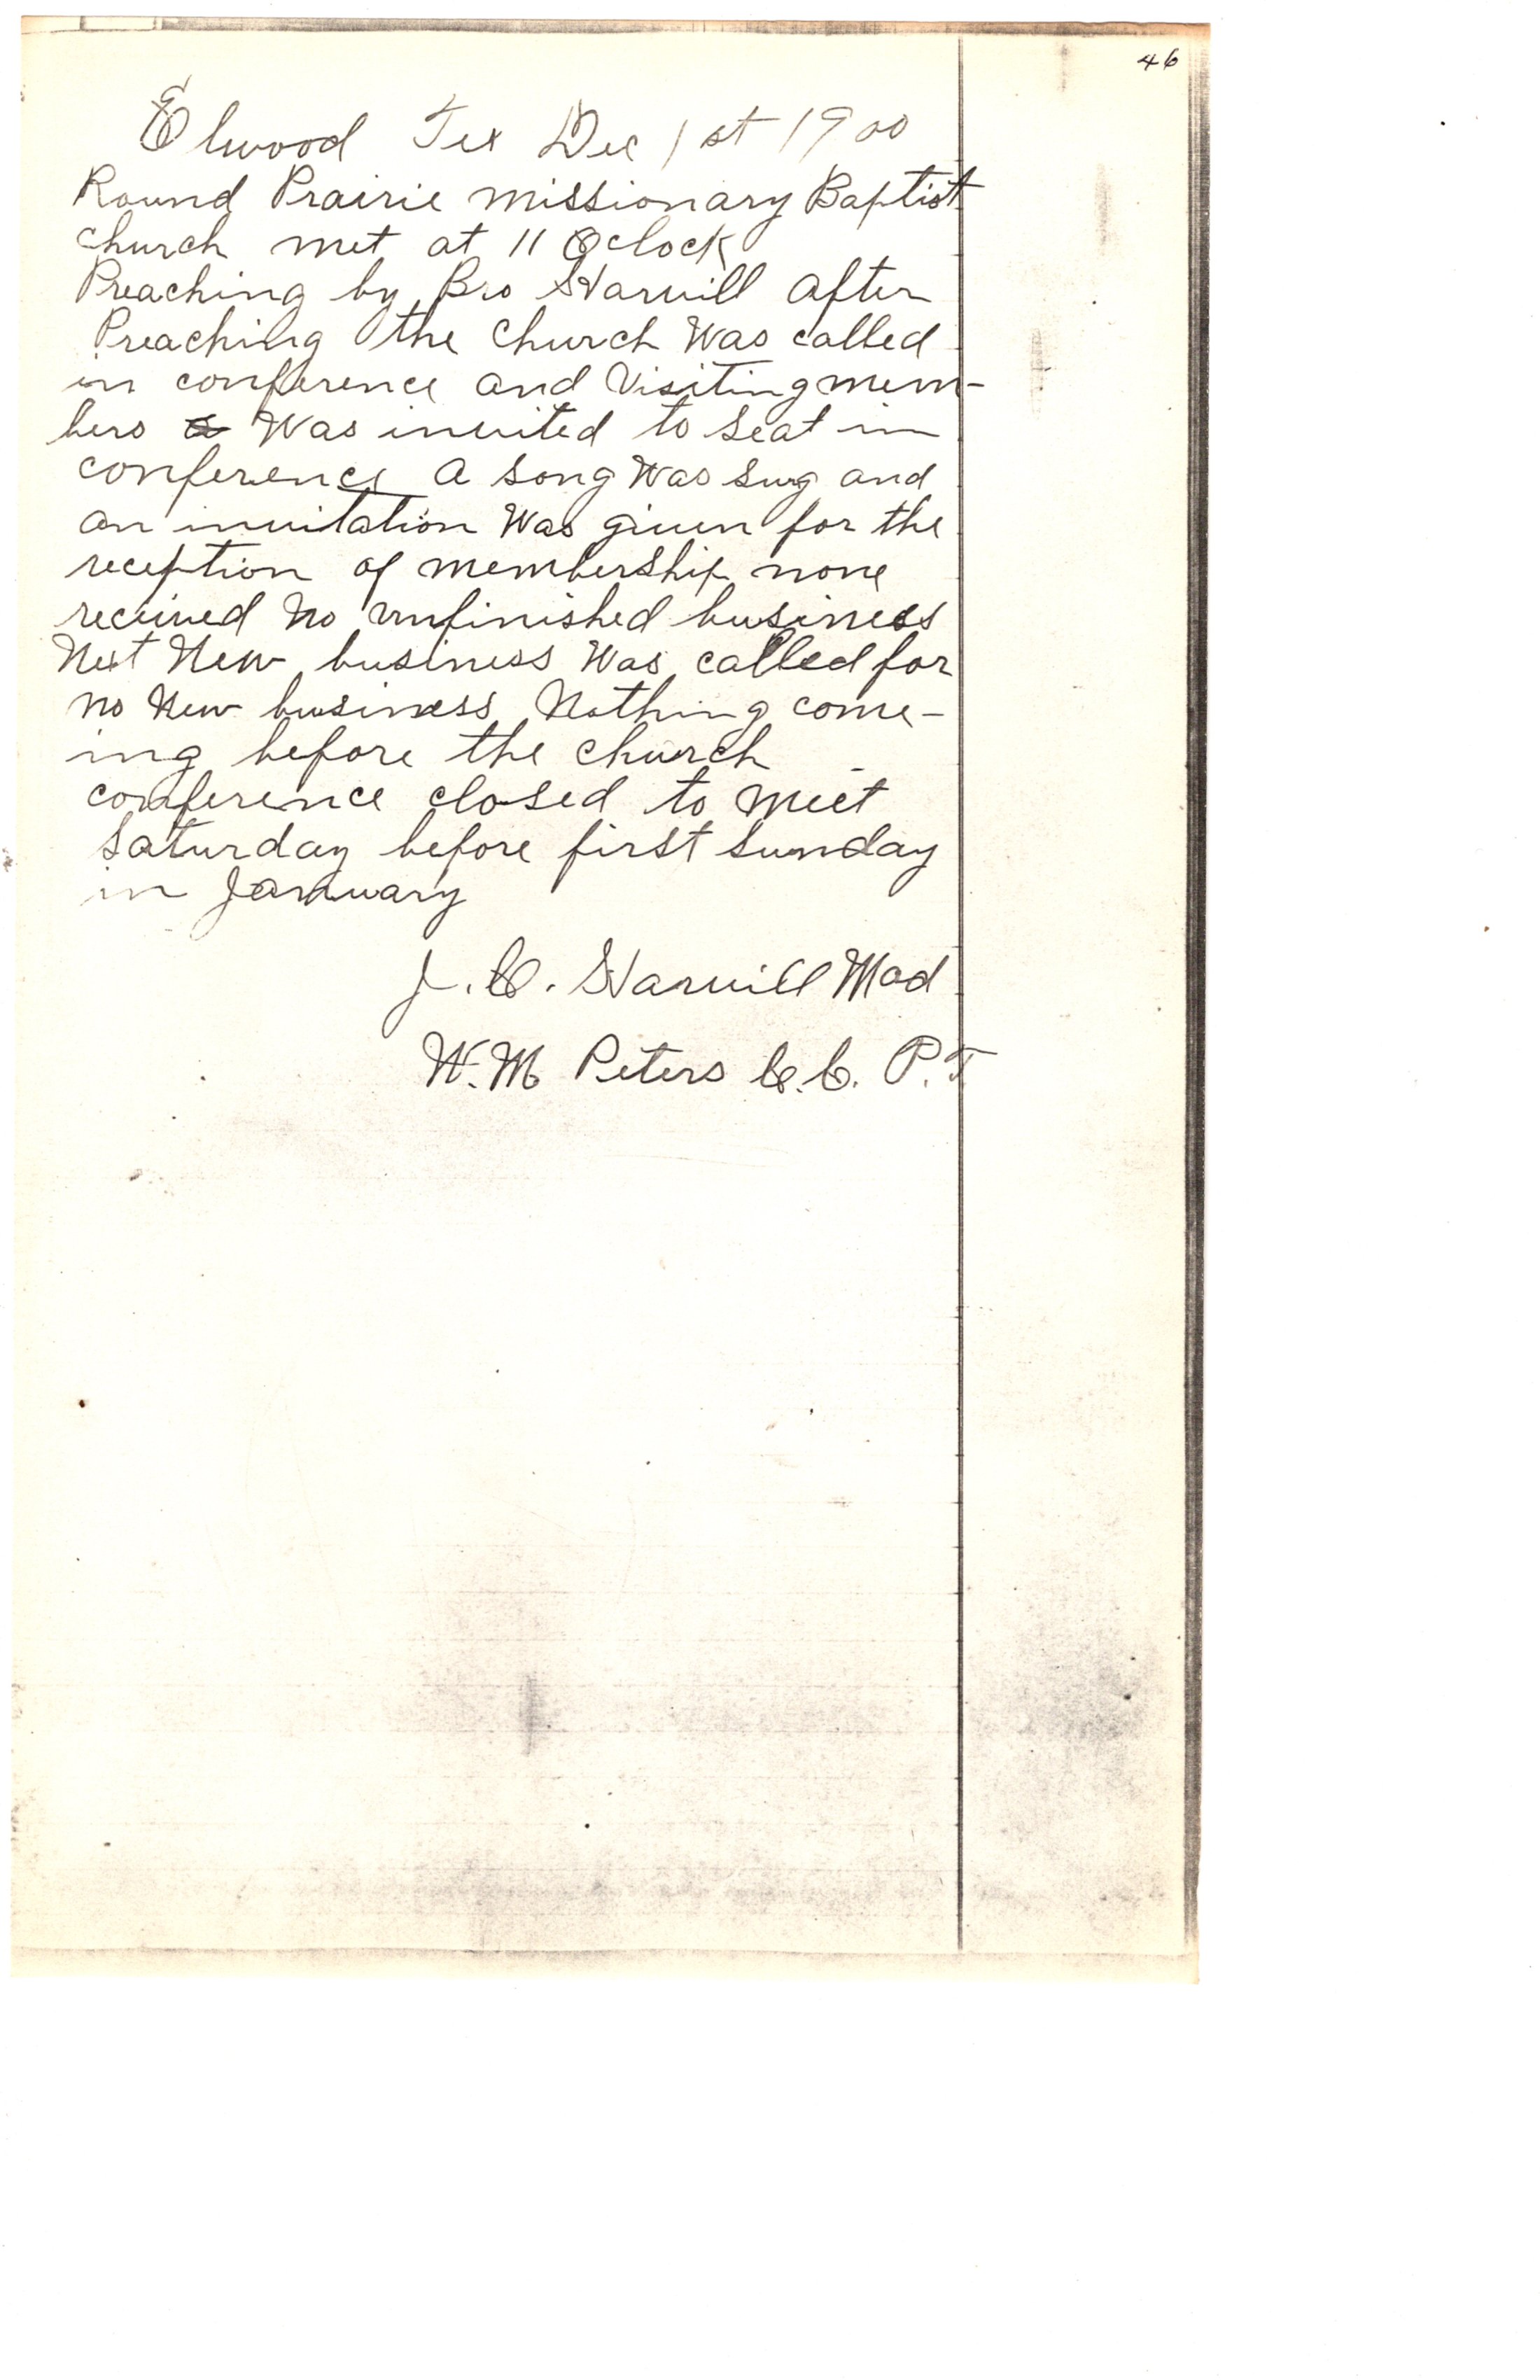 46
Elwood Tex Dec 1st 1900
Round Prairie missionary Baptist
church met at 11 Oclock
Preaching by Bro Harvill after
Preaching the Church Was called
in conference and Visiting mem-
bers a Was invited to seat in
conference A song Was sung and
an invitation Was given for the
reception of membership none
received No unfinished business
Next New business Was called for
no New business Nothing come-
ing before the church
conference closed to meet
saturday before first sunday
in January
J.C. Harvill Mod
W.M Peters C.C. P.T